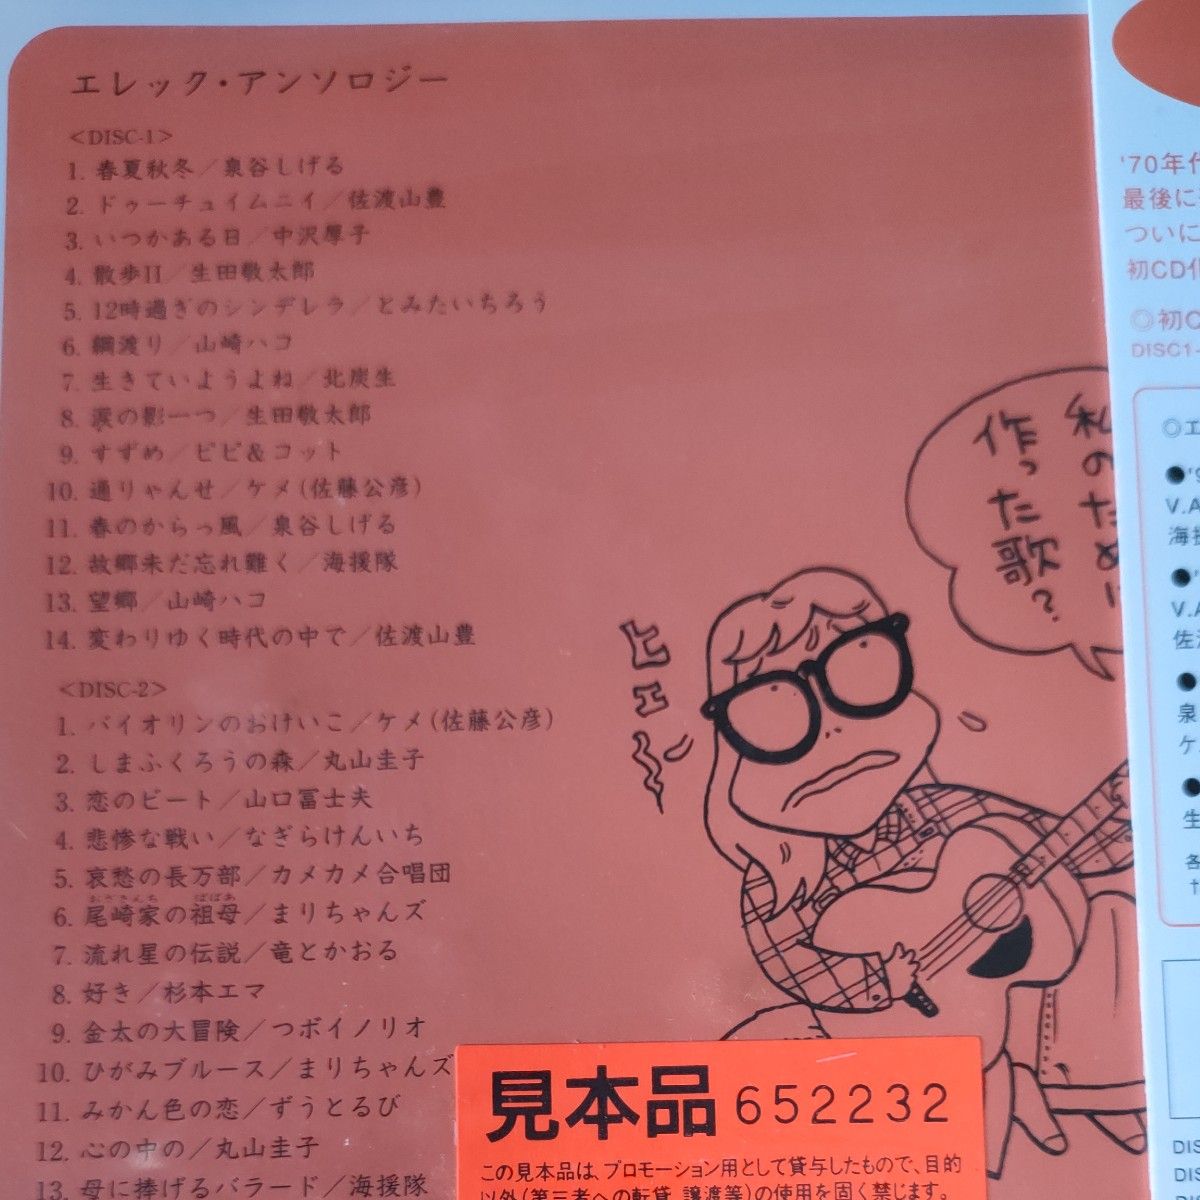 エレック・アンソロジー
<DISC-1>
1. 春夏秋冬／泉谷しげる
2. ドゥーチュイムニイ／佐渡山豊
3. いつかある日／中沢厚子
4. 散歩II／生田敬太郎
5. 12時過ぎのシンデレラ／とみたいちろう
6. 綱渡り／山崎ハコ
7. 生きていようよね／北炭生
8. 涙の影一つ／生田敬太郎
9. すずめ／ピピ&コット
10. 通りゃんせ／ケメ(佐藤公彦)
11. 春のからっ風／泉谷しげる
12. 故郷未だ忘れ難く／海援隊
13. 望郷／山崎ハコ
14. 変わりゆく時代の中で／佐渡山豊
<DISC-2>
1. バイオリンのおけいこ／ケメ(佐藤公彦)
2. しまふくろうの森／丸山圭子
3. 恋のビート／山口冨士夫
4. 悲惨な戦い／なぎらけんいち
5. 哀愁の長万部／カメカメ合唱団
おざきんち ばばあ
6. 尾崎家の祖母／まりちゃんズ
7. 流れ星の伝説／竜とかおる
8. 好き／杉本エマ
9. 金太の大冒険／つボイノリオ
10. ひがみブルース／まりちゃんズ
11. みかん色の恋／ずうとるび
12. 心の中の／丸山圭子
13. 母に捧げるバラード／海援隊
私のために
作った歌?
ヒェ〜
見本品 652232
この見本品は、プロモーション用として貸与したもので、目的
以外(第三者への転貸、譲渡等)の使用を固く禁じます。
'70年代
最後に
ついに
初CD化
◎初C
DISC1-
◎エ
●'9
V.A
海援
●'
V.A
佐渡
●
泉
ケ
●
生
各
†
DIS
DIS